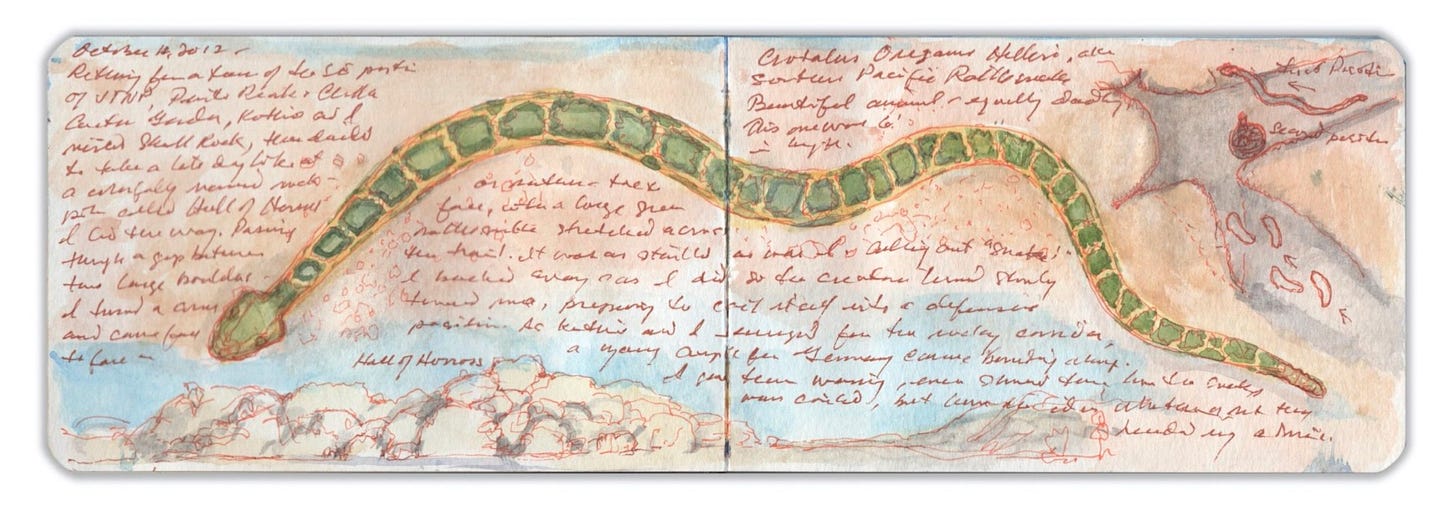 October 14, 2012 -
Returning from a tour of the SE portion
of JTNP, Painted Rocks & Cholla
Cactus Garden, Kathie and I
visited Skull Rock, then decided
to take a late day hike at
a colorfully named rock-
pile called Hall of Horrors
I led the way. Passing
through a gap between
two large boulders -
I turned a corner
and came face
to face -
on another track
face, with a large green
rattlesnake stretched across
the trail. It was as startled as was I - calling out "snake!"
I backed away as I did so the creature turned slowly
toward me, preparing to coil itself into a defensive
position. As Kathie and I emerged from the rocky corridor,
a young couple from Germany came bounding along.
I gave them warning, even showed them how the snake
was coiled, but
Hall of Horrors
Crotalus Oreganus Helleri, aka
Southern Pacific Rattlesnake
Beautiful animal - equally deadly
This one was 6'
in length.
First Position
Second position